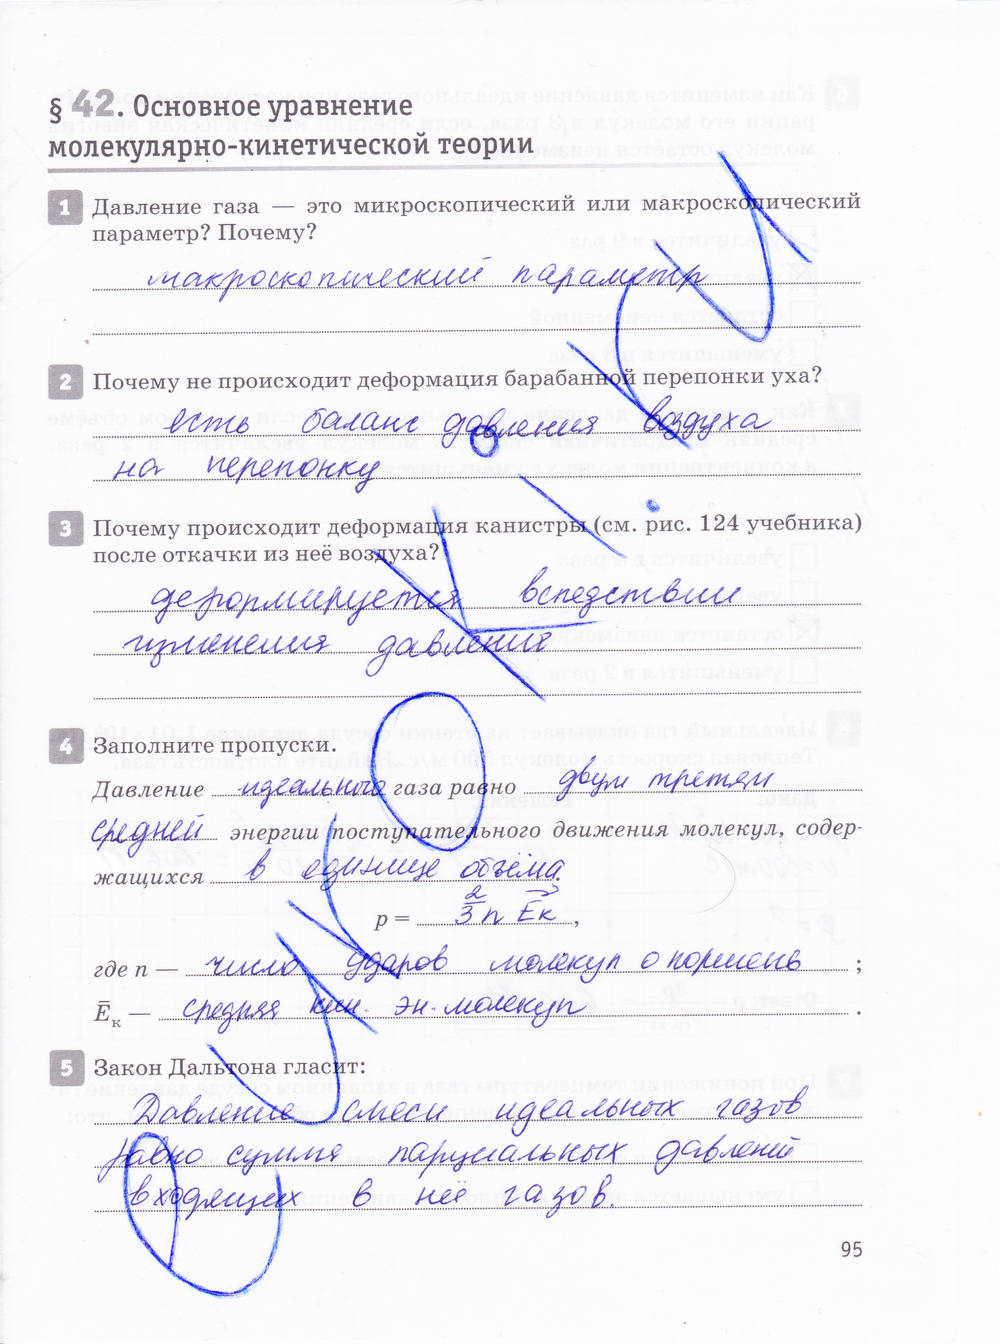 § 42. Основное уравнение
молекулярно-кинетической теории
1 Давление газа — это микроскопический или макроскопический
параметр? Почему?
макроскопический параметр
2 Почему не происходит деформация барабанной перепонки уха?
есть баланс давления воздуха
на перепонку
3 Почему происходит деформация канистры (см. рис. 124 учебника)
после откачки из неё воздуха?
деформируется вследствии
изменения давления
4 Заполните пропуски.
Давление идеального газа равно двум третям
средней энергии поступательного движения молекул, содер-
жащихся в единице объёма
p = 2/3 n Eк ,
где n — число ударов молекул о поршень ;
E̅к — средняя кин. эн. молекул .
5 Закон Дальтона гласит:
Давление смеси идеальных газов
равно сумме парциальных давлений
входящих в неё газов.
95